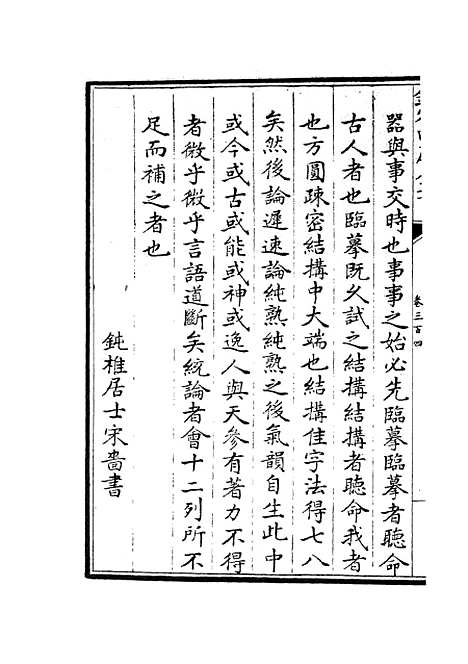 卷三百四
器與事交時也事事之始必先臨摹臨摹者聽命
古人者也臨摹既久試之結構結構者聽命我者
也方圓疎密結構中大端也結構佳字法得七八
矣然後論遲速論純熟純熟之後氣韻自生此中
或今或古或能或神或逸人與天參有著力不得
者微乎微乎言語道斷矣統論者會十二列所不
足而補之者也
鈍椎居士宋嗇書